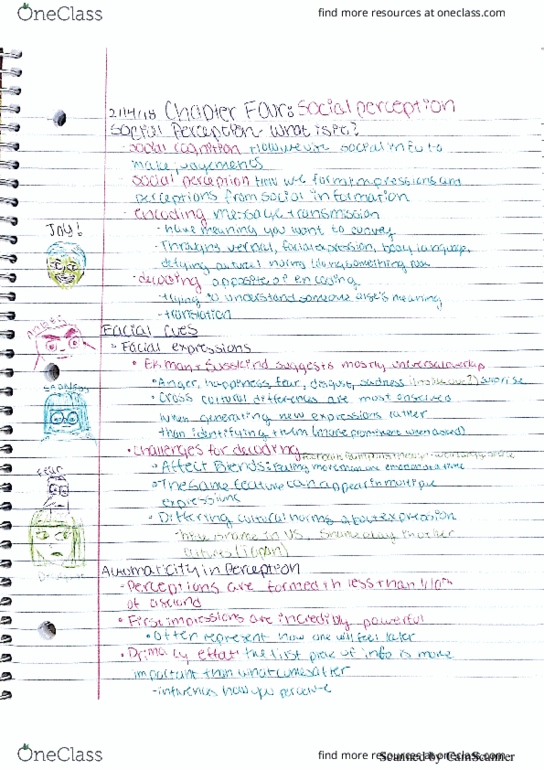 OneClass
find more resources at oneclass.com
2/14/18 Chapter Four: Social perception
Social Perception- what is it?
- social cognition How we use social info to
make judgements
- social perception How we form impressions and
perceptions from social information
- encoding message transmission
- have meaning you want to convey
- Through verbal, facial expression, body language,
defying cultural norms
- decoding opposite of encoding
- trying to understand someone else's meaning
- translation
Joy!
Facial cues
• Facial expressions
• Ekman + suggests mostly universal
• Anger, happiness, fear, disgust, sadness surprise
• Cross cultural differences are most observed
when generating new expressions rather
than identifying them (more prominent when asked)
Anger
Sadness
• challenges for decoding
• Affect Blends: more than one emotion at a time
• The same feature can appear in multiple
expressions
• Differing cultural norms about expression
in US. in other
cultures (Japan)
Fear
Disgust
Automaticity in Perception
- Perceptions are formed in less than 1/10th
of a second
• First impressions are incredibly powerful
• often represent how one will feel later
• Primacy effect: the first piece of info is more
important than what comes after
- influences how you perceive
OneClass
find more resources at oneclass.com
Scanned by CamScanner